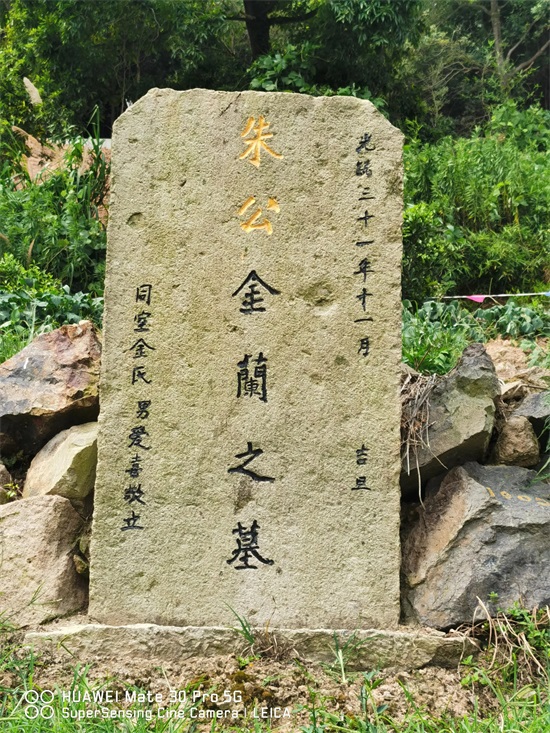 光緒三十一年十一月 吉旦
朱公金蘭之墓
同室金氏 男愛喜敬立
HUAWEI Mate 30 Pro 5G
SuperSensing Cine Camera | LEICA